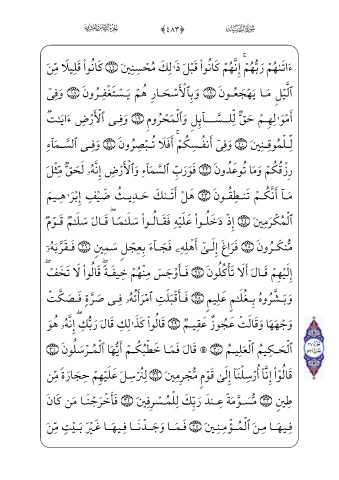 سُورَةُ الذَّارِيَاتِ ﴿٤٨٣﴾
ءَاتَىٰهُمْ رَبُّهُمْ ۚ إِنَّهُمْ كَانُوا۟ قَبْلَ ذَٰلِكَ مُحْسِنِينَ ۝ كَانُوا۟ قَلِيلًا مِّنَ
ٱلَّيْلِ مَا يَهْجَعُونَ ۝ وَبِٱلْأَسْحَارِ هُمْ يَسْتَغْفِرُونَ ۝ وَفِىٓ
أَمْوَٰلِهِمْ حَقٌّ لِّلسَّآئِلِ وَٱلْمَحْرُومِ ۝ وَفِى ٱلْأَرْضِ ءَايَٰتٌ
لِّلْمُوقِنِينَ ۝ وَفِىٓ أَنفُسِكُمْ ۚ أَفَلَا تُبْصِرُونَ ۝ وَفِى ٱلسَّمَآءِ
رِزْقُكُمْ وَمَا تُوعَدُونَ ۝ فَوَرَبِّ ٱلسَّمَآءِ وَٱلْأَرْضِ إِنَّهُۥ لَحَقٌّ مِّثْلَ
مَآ أَنَّكُمْ تَنطِقُونَ ۝ هَلْ أَتَىٰكَ حَدِيثُ ضَيْفِ إِبْرَٰهِيمَ
ٱلْمُكْرَمِينَ ۝ إِذْ دَخَلُوا۟ عَلَيْهِ فَقَالُوا۟ سَلَٰمًا ۖ قَالَ سَلَٰمٌ قَوْمٌ
مُّنكَرُونَ ۝ فَرَاغَ إِلَىٰٓ أَهْلِهِۦ فَجَآءَ بِعِجْلٍ سَمِينٍ ۝ فَقَرَّبَهُۥٓ
إِلَيْهِمْ قَالَ أَلَا تَأْكُلُونَ ۝ فَأَوْجَسَ مِنْهُمْ خِيفَةً ۖ قَالُوا۟ لَا تَخَفْ ۖ
وَبَشَّرُوهُ بِغُلَٰمٍ عَلِيمٍ ۝ فَأَقْبَلَتِ ٱمْرَأَتُهُۥ فِى صَرَّةٍ فَصَكَّتْ
وَجْهَهَا وَقَالَتْ عَجُوزٌ عَقِيمٌ ۝ قَالُوا۟ كَذَٰلِكِ قَالَ رَبُّكِ ۖ إِنَّهُۥ هُوَ
ٱلْحَكِيمُ ٱلْعَلِيمُ ۝ ۞ قَالَ فَمَا خَطْبُكُمْ أَيُّهَا ٱلْمُرْسَلُونَ ۝
قَالُوٓا۟ إِنَّآ أُرْسِلْنَآ إِلَىٰ قَوْمٍ مُّجْرِمِينَ ۝ لِنُرْسِلَ عَلَيْهِمْ حِجَارَةً مِّن
طِينٍ ۝ مُّسَوَّمَةً عِندَ رَبِّكَ لِلْمُسْرِفِينَ ۝ فَأَخْرَجْنَا مَن كَانَ
فِيهَا مِنَ ٱلْمُؤْمِنِينَ ۝ فَمَا وَجَدْنَا فِيهَا غَيْرَ بَيْتٍ مِّنَ